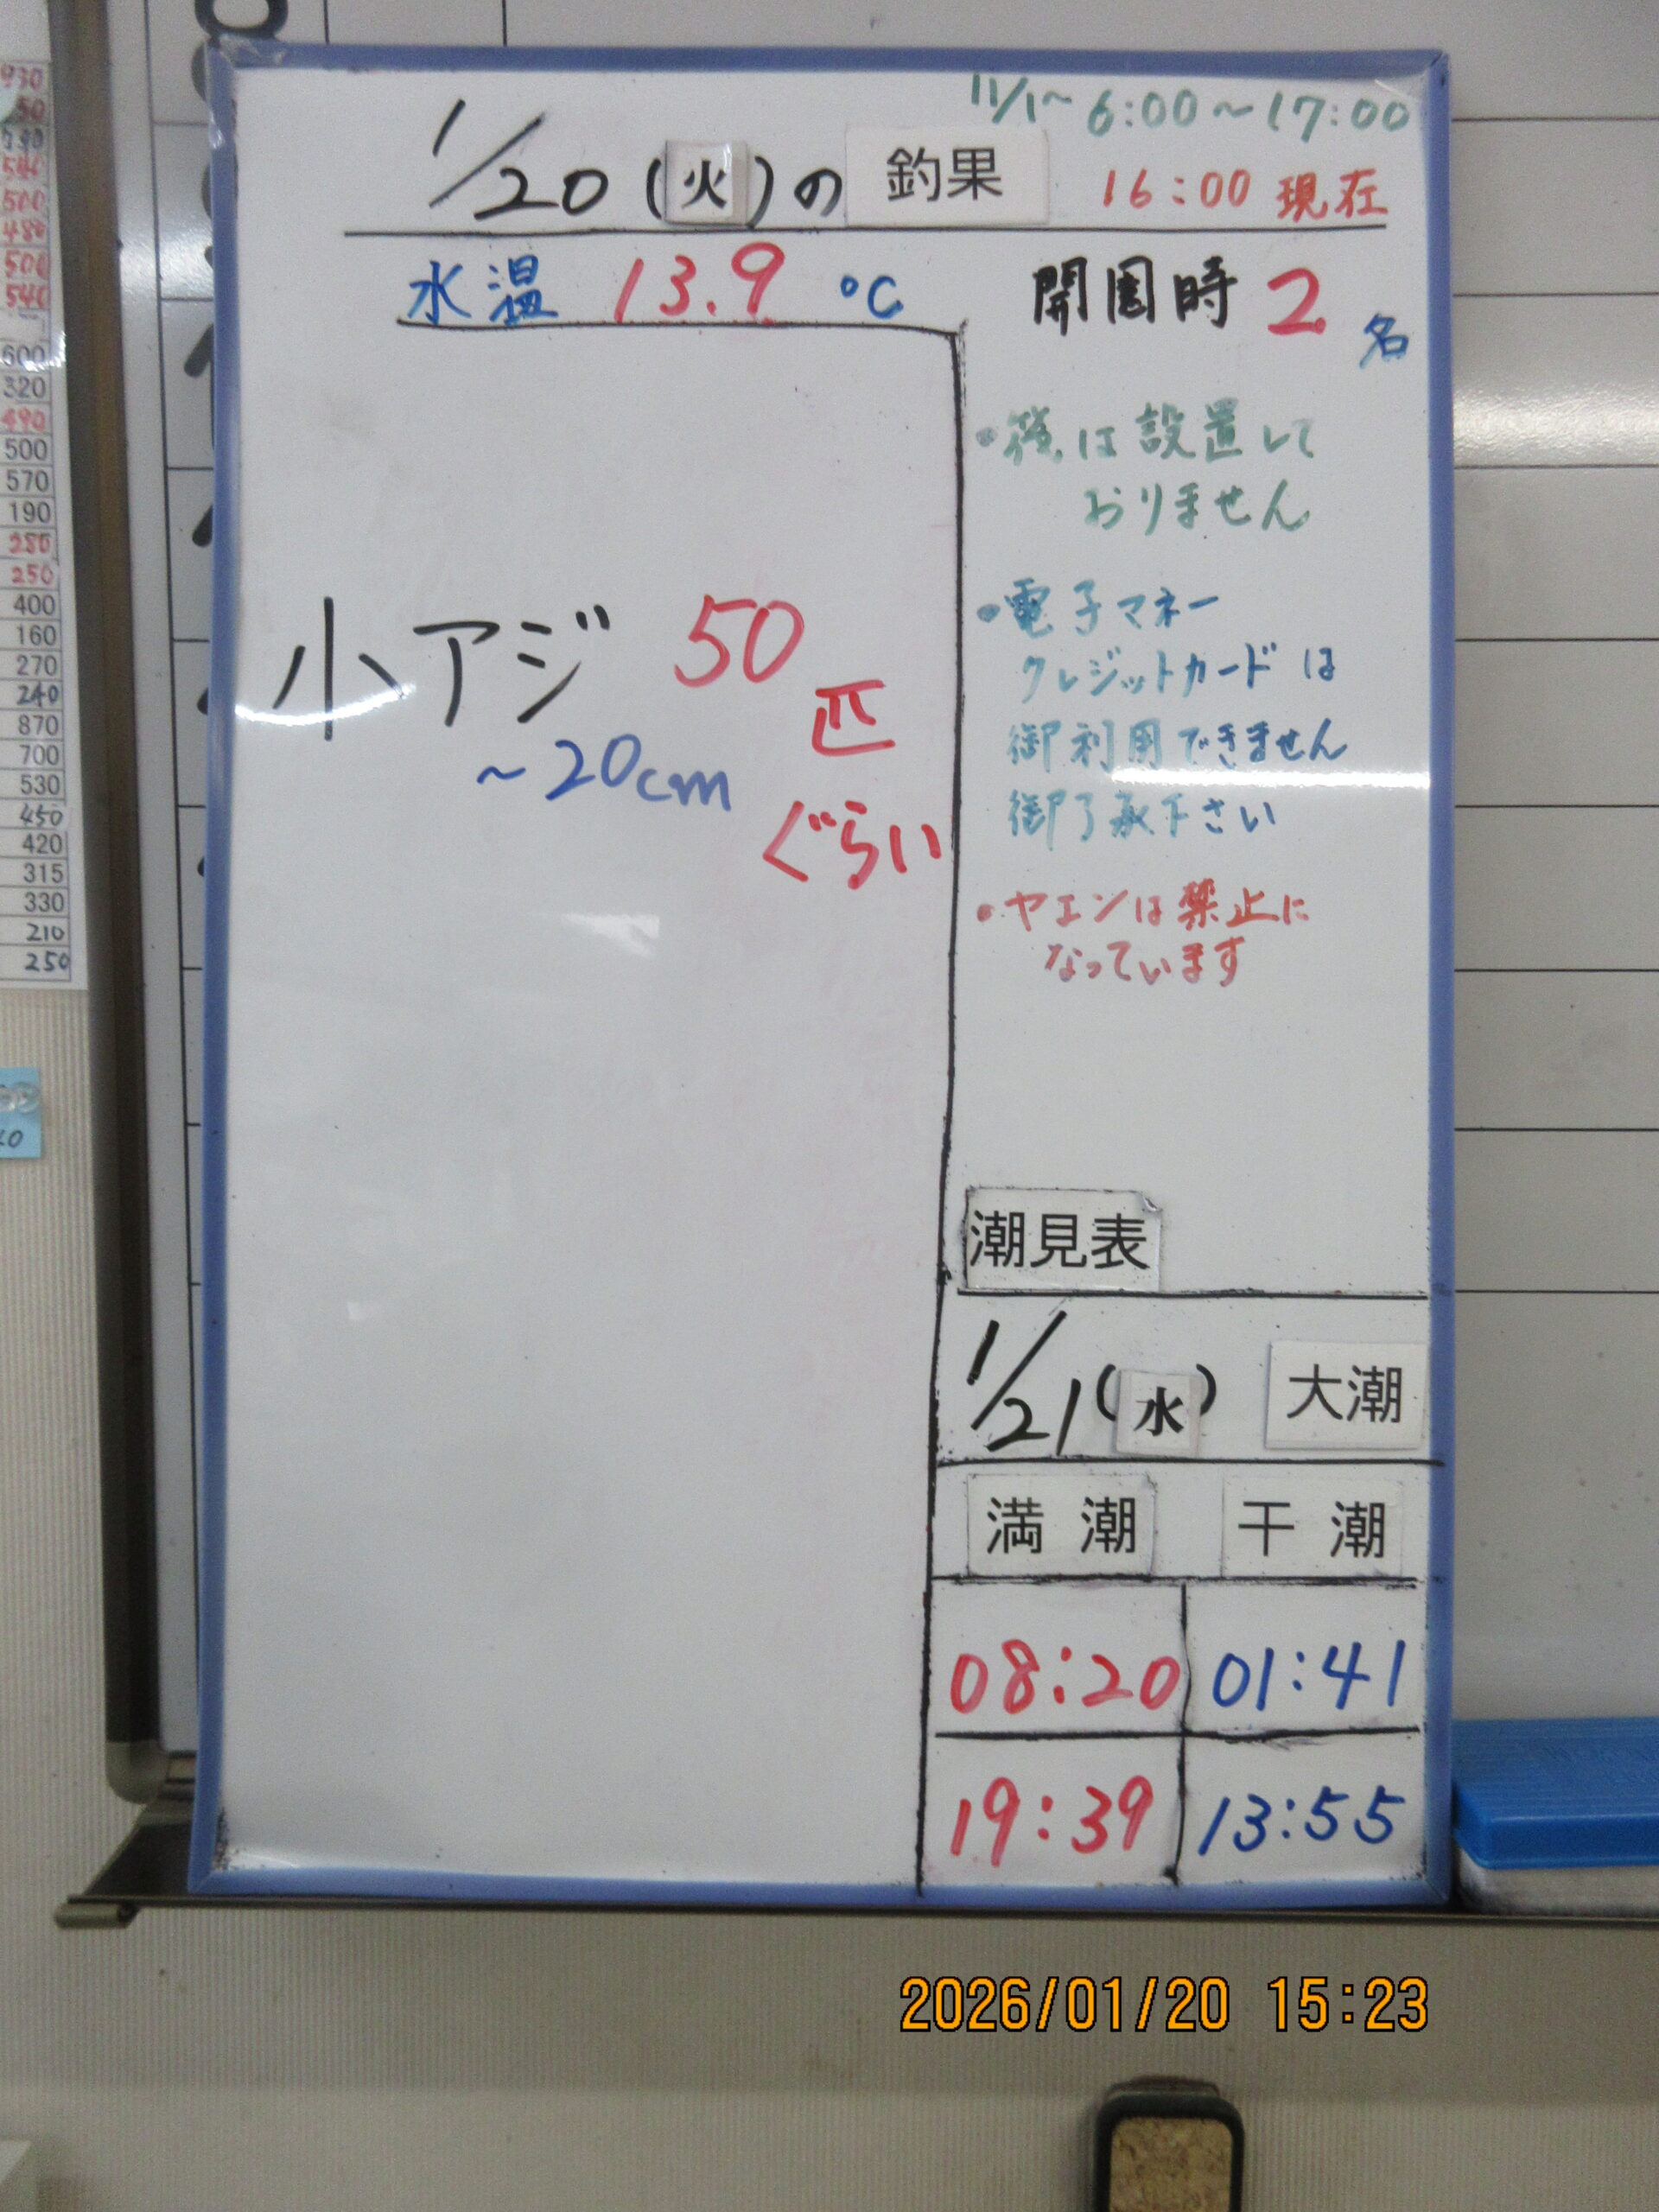 11/1~ 6:00~17:00
1/20(火)の 釣果 16:00 現在
水温 13.9 ℃
開園時 2名
小アジ 50匹ぐらい
~20cm
は設置して
おりません
・電子マネー
クレジットカードは
御利用できません
御了承下さい
・ヤエンは禁止に
なっています
潮見表
1/21(水) 大潮
満潮 干潮
08:20 01:41
19:39 13:55
930
500
480
500
540
600
320
490
500
570
190
280
250
400
160
270
240
870
700
530
450
420
315
330
210
250
2026/01/20 15:23